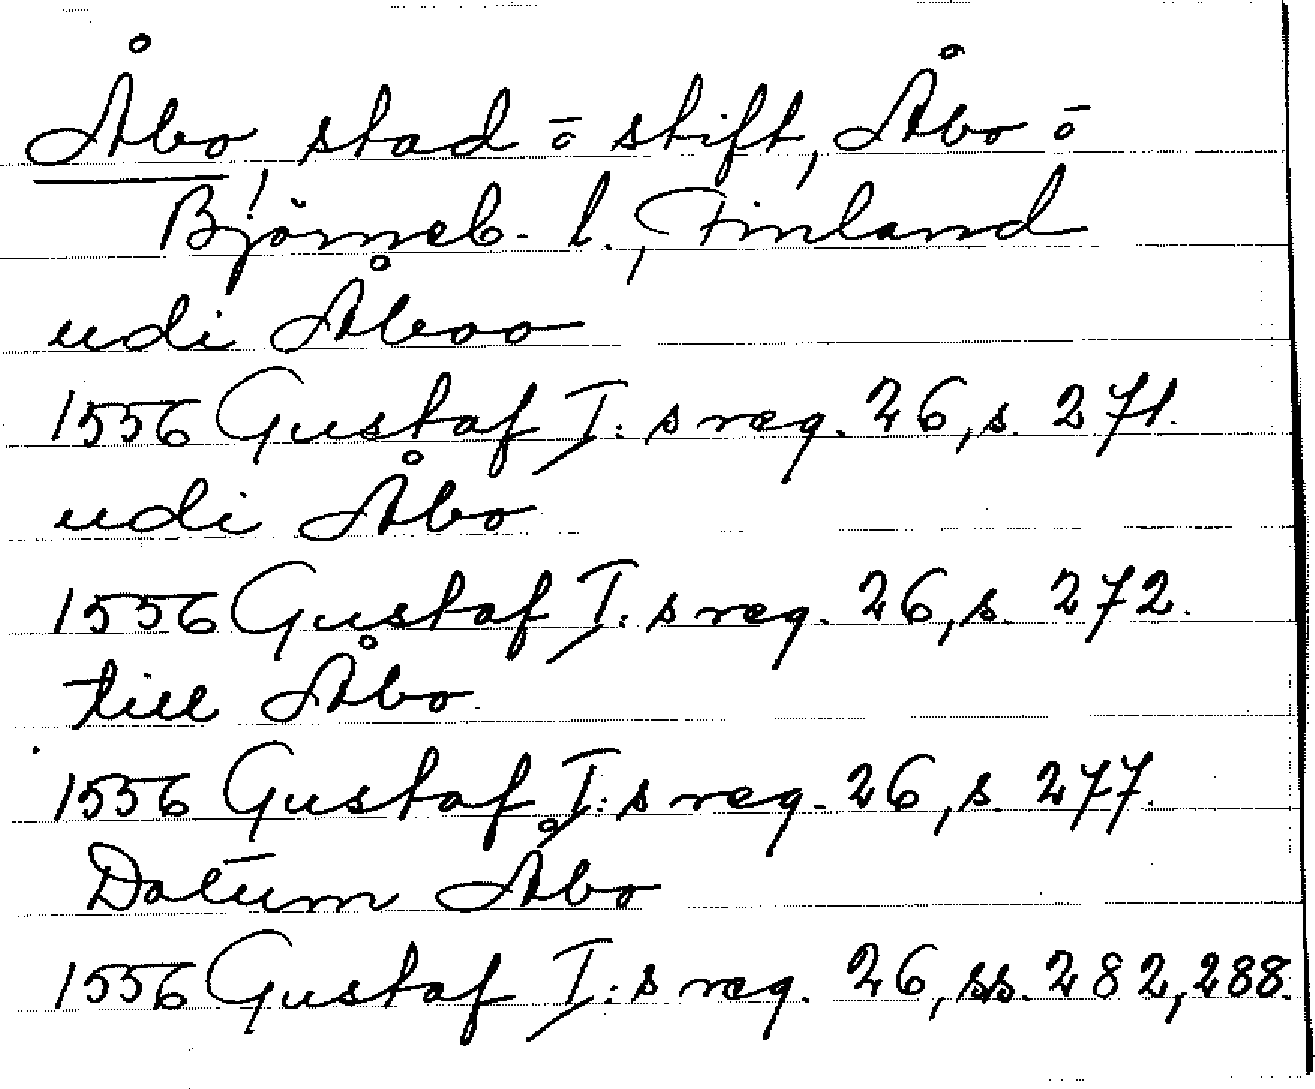 Åbo, stad o stift, Åbo o
Björneb. l., Finland
udi Åboo
1556 Gustaf I:s reg. 26, s. 271.
udi Åbo
1556 Gustaf I:s reg. 26, s. 272.
till Åbo
1556 Gustaf I:s reg. 26, s. 277.
Datum Åbo
1556 Gustaf I:s reg. 26, ss. 282, 288.